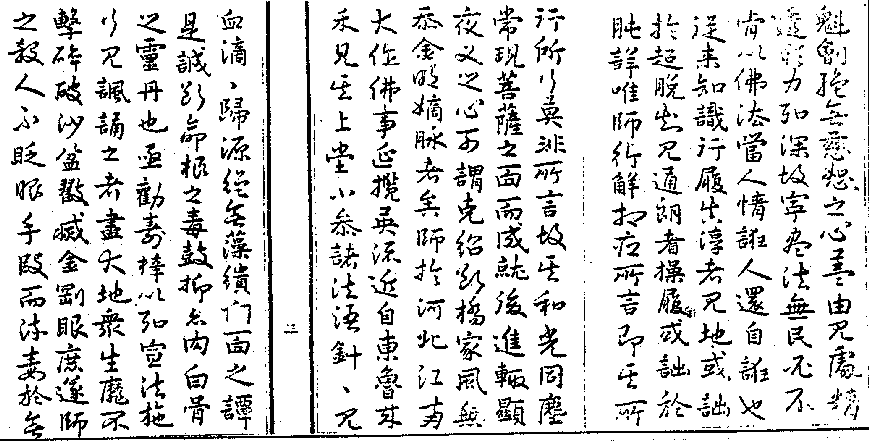 魁劊絕無慈恕之心蓋由見處精
力弘深故寧盡法無民不
肯以佛法當人情誑人還自誑也
從來知識行履真淳者見地或詘
於超脫知見通朗者操履或詘於
肫詳唯師行解相應所言即其所
行所行莫非所言故其和光同塵
常現菩薩之面而成就後進輒顯
夜叉之心可謂克紹斷橋家風無
忝金明嫡脉者矣師於河北江南
大作佛事延攬英流近自東魯來
禾見其上堂小參諸法語針〻見
血滴〻歸源絕無藻繢門面之譚
是誠斷命根之毒鼓抑亦肉白骨
之靈丹也亟勸壽梓以弘宣法施
行見諷誦之者盡大地衆生靡不
擊碎破沙盆金剛眼庶遂師
之殺人不眨眼手段而流毒於無